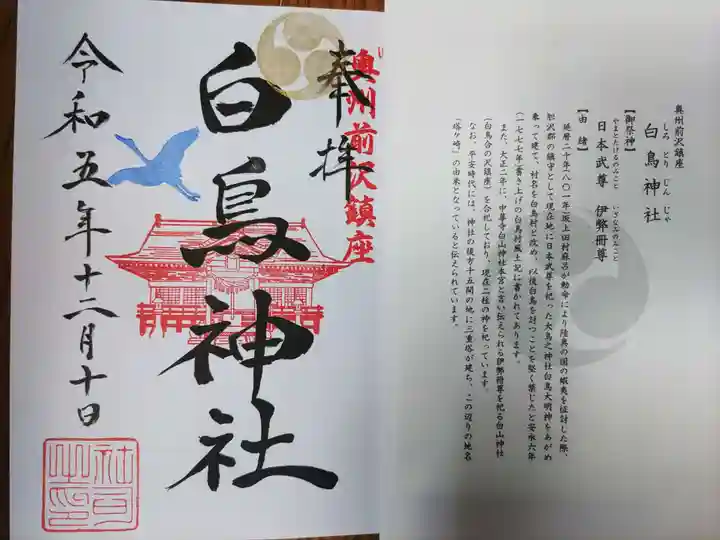 奉拝
奥州前沢鎮座
白鳥神社
令和五年十二月十日
奥州前沢鎮座
しろとりじんじゃ
白鳥神社
【御祭神】
やまとたけるのみこと いざなみのみこと
日本武尊 伊弊冊尊
【由緒】
延暦二十年(八〇一年)坂上田村麻呂が勅命により陸奥の国の蝦夷を征討した際、
胆沢郡の鎮守として現在地に日本武尊を祀った大鳥之神社白鳥大明神をあがめ
奉って建て、村名を白鳥村と改め、以後白鳥を討つことを堅く禁じたと安永六年
(一七七七年)書き上げの白鳥村風土記に書かれてあります。
また、大正二年に、中尊寺白山神社本宮と言い伝えられる伊弊冊尊を祀る白山神社
(白鳥合の沢鎮座)を合祀しており、現在二柱の神を祀っています。
なお、平安時代には、神社の後方十五間の地に三重塔が建ち、この辺りの地名
「塔ヶ崎」の由来となっていると伝えられています。